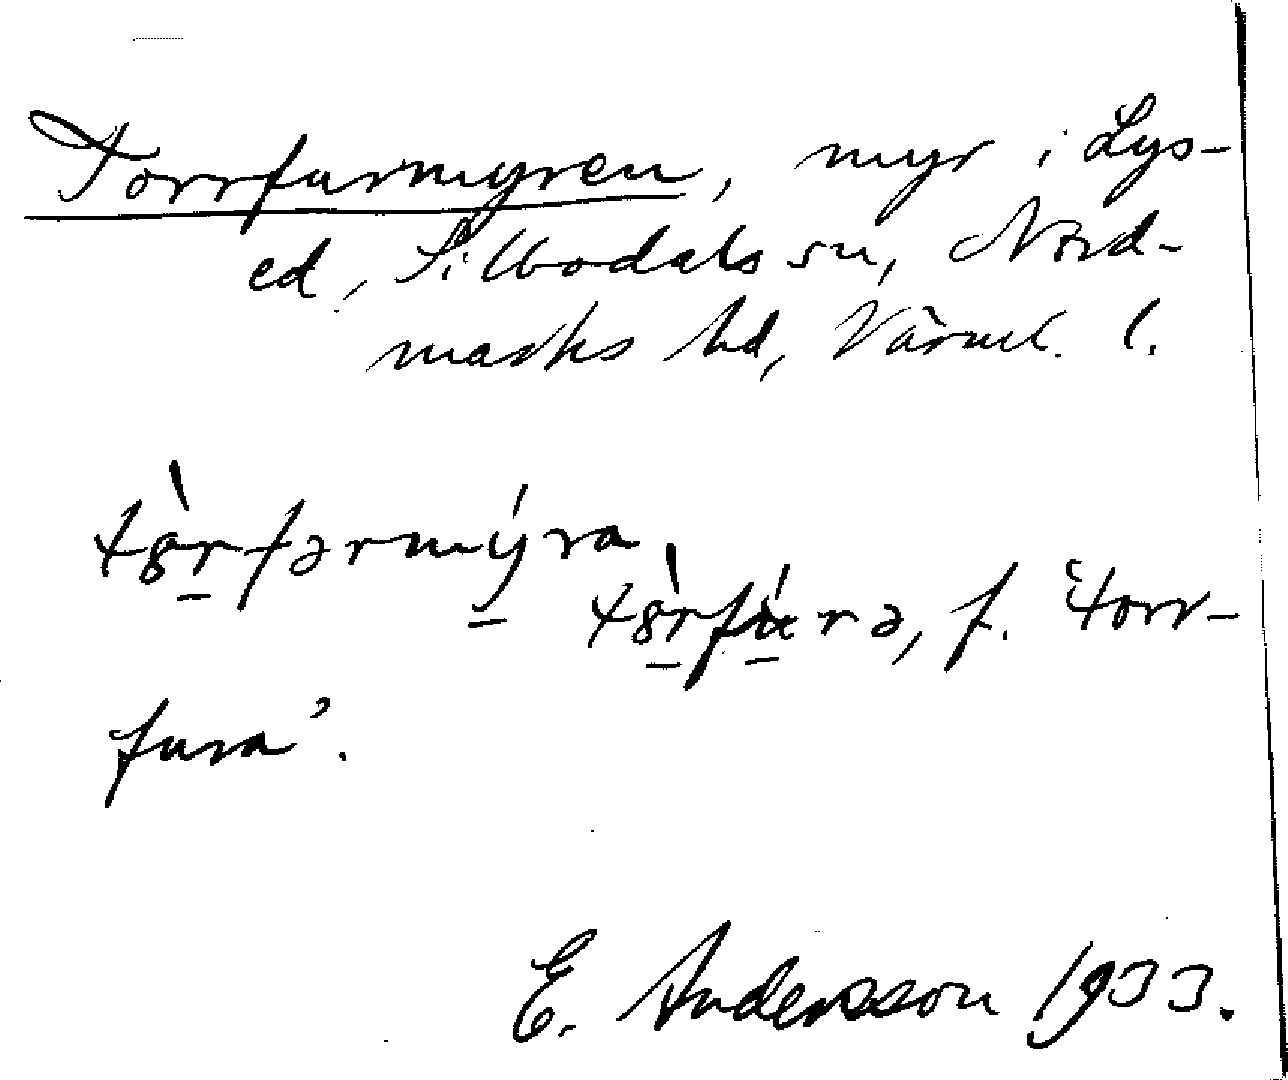 Torrfurmyren, myr i Lys-
ed, Silbodals sn, Nord-
marks hd, Värml. l.
tȣ̀r̲fərmý̲ra
tȣ̀r̲fú̲rə, f. ‘torr-
fura’.
E. Andersson 1933.